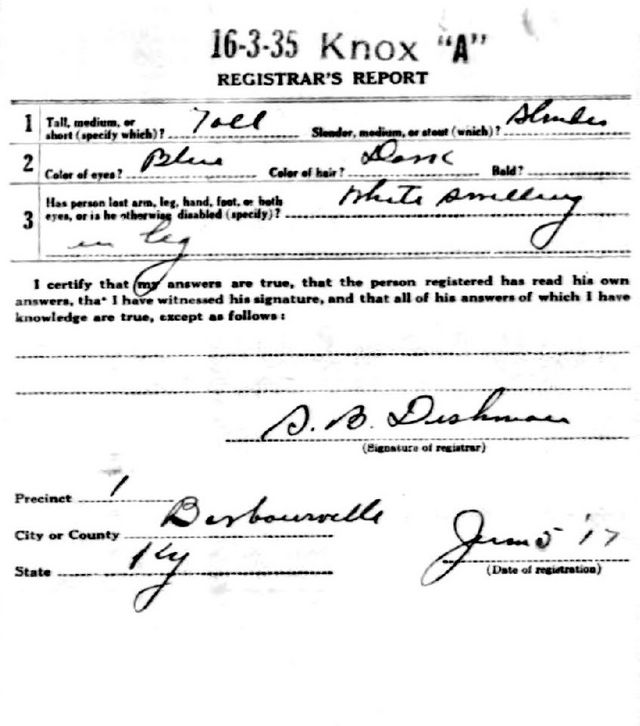 16-3-35 Knox "A"
REGISTRAR'S REPORT
1 Tall, medium, or short (specify which)? Tall Slender, medium, or stout (which)? Slender
2 Color of eyes? Blue Color of hair? Dark Bald?
3 Has person lost arm, leg, hand, foot, or both
eyes, or is he otherwise disabled (specify)? White swelling
in leg
I certify that my answers are true, that the person registered has read his own
answers, that I have witnessed his signature, and that all of his answers of which I have
knowledge are true, except as follows:
S. B. Dishman
(Signature of registrar)
Precinct 1
City or County Barbourville
State Ky
June 5 '17
(Date of registration)